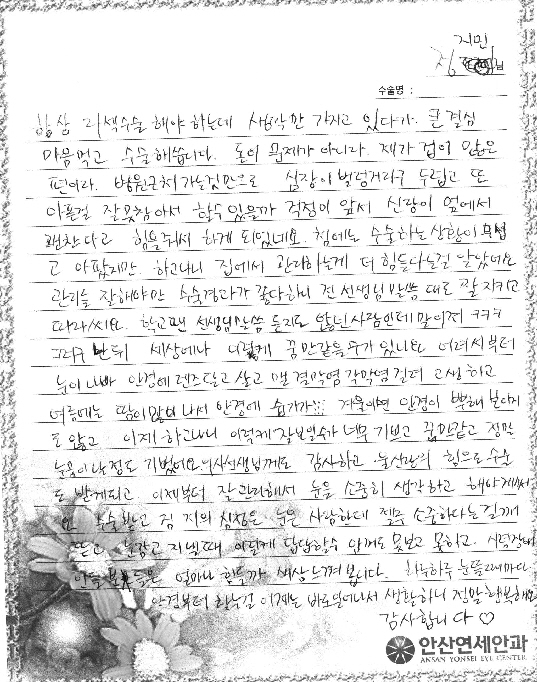 지민
정 님
수술명 :
항상 라섹수술 해야 하는데 생각만 가지고 있다가. 큰 결심
마음먹고 수술해씁니다. 돈이 문제가 아니라. 제가 겁이 많은
편이라. 병원근처 가는것만으로 심장이 벌렁거리구 두렵고 또
아픈걸 잘못참아서 할수 있을까 걱정이 앞서 신랑이 옆에서
괜찬다고 힘을줘서 하게 되었네요. 첨에는 수술하는 상황이 무섭
고 아팠지만. 하고나니 집에서 관리하는게 더 힘들다는걸 알았어요
관리를 잘해야만 수술경과가 좋다하니 전 선생님 말씀 대로 잘 지키고
따라써요. 학교땐 선생님 말씀 듣지도 않던 사람인데 말이죠 ㅋㅋㅋ
그리구 난뒤 세상에나 이렇게 꿈만같을수가 있니요 어려서부터
눈이 나빠 안경에 렌즈달고 살고 맨 결막염 각막염 걸려 고생하고
여름에는 땀이 많이 나서 안경에 습기가!!! 겨울이면 안경이 뿌해 보이지
도 않고 이제 하고나니 이렇게 잘보일수가 너무 기쁘고 꿈만같고 정말
눈물이 날 정도 기뻤어요 의사선생님께도 감사하고 힘으로 수술
도 받게되고 이제부터 잘 관리해서 눈을 소중히 생각하고 해야게써
요 수술받고 집 저의 심정은 눈은 사람한테 제일 소중하다는걸 깨
닫고 눈감고 지낼때 이렇게 답답할수 앞에도 못보고 못하고. 시력장애
아들 분들은 얼마나 힘들까 세상 느껴 봅니다. 하루하루 눈뜰때마다
안경부터 찾는걸 이제는 바로일어나서 생활하니 정말행복해요
감사합니다 ♡
안산연세안과
ANSAN YONSEI EYE CENTER